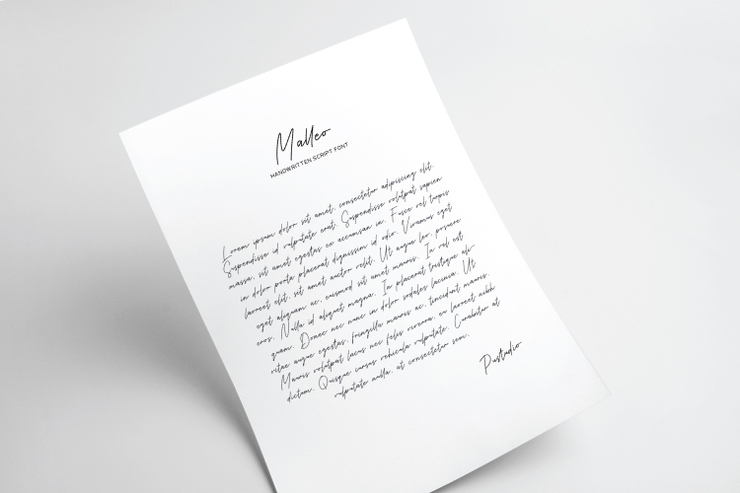 Malleo
HANDWRITTEN SCRIPT FONT
Lorem ipsum dolor sit amet, consectetur adipiscing elit.
Suspendisse id vulputate erat. Suspendisse volutpat sapien
massa, sit amet egestas ex accumsan in. Fusce vel turpis
in dolor porta placerat dignissim id odio. Vivamus eget
laoreet elit, sit amet auctor velit. Ut augue leo, posuere
eget aliquam ac, euismod sit amet mauris. In vel est
eros. Nulla id aliquet magna. In placerat tristique ali-
quam. Donec nec nunc in dolor sodales lacinia. Ut
vitae augue egestas, fringilla mauris ac, tincidunt mauris.
Mauris volutpat lacus nec felis viverra, eu laoreet nibh
dictum. Quisque cursus vehicula vulputate. Curabitur at
vulputate nulla, at consectetur sem.
Pustudio